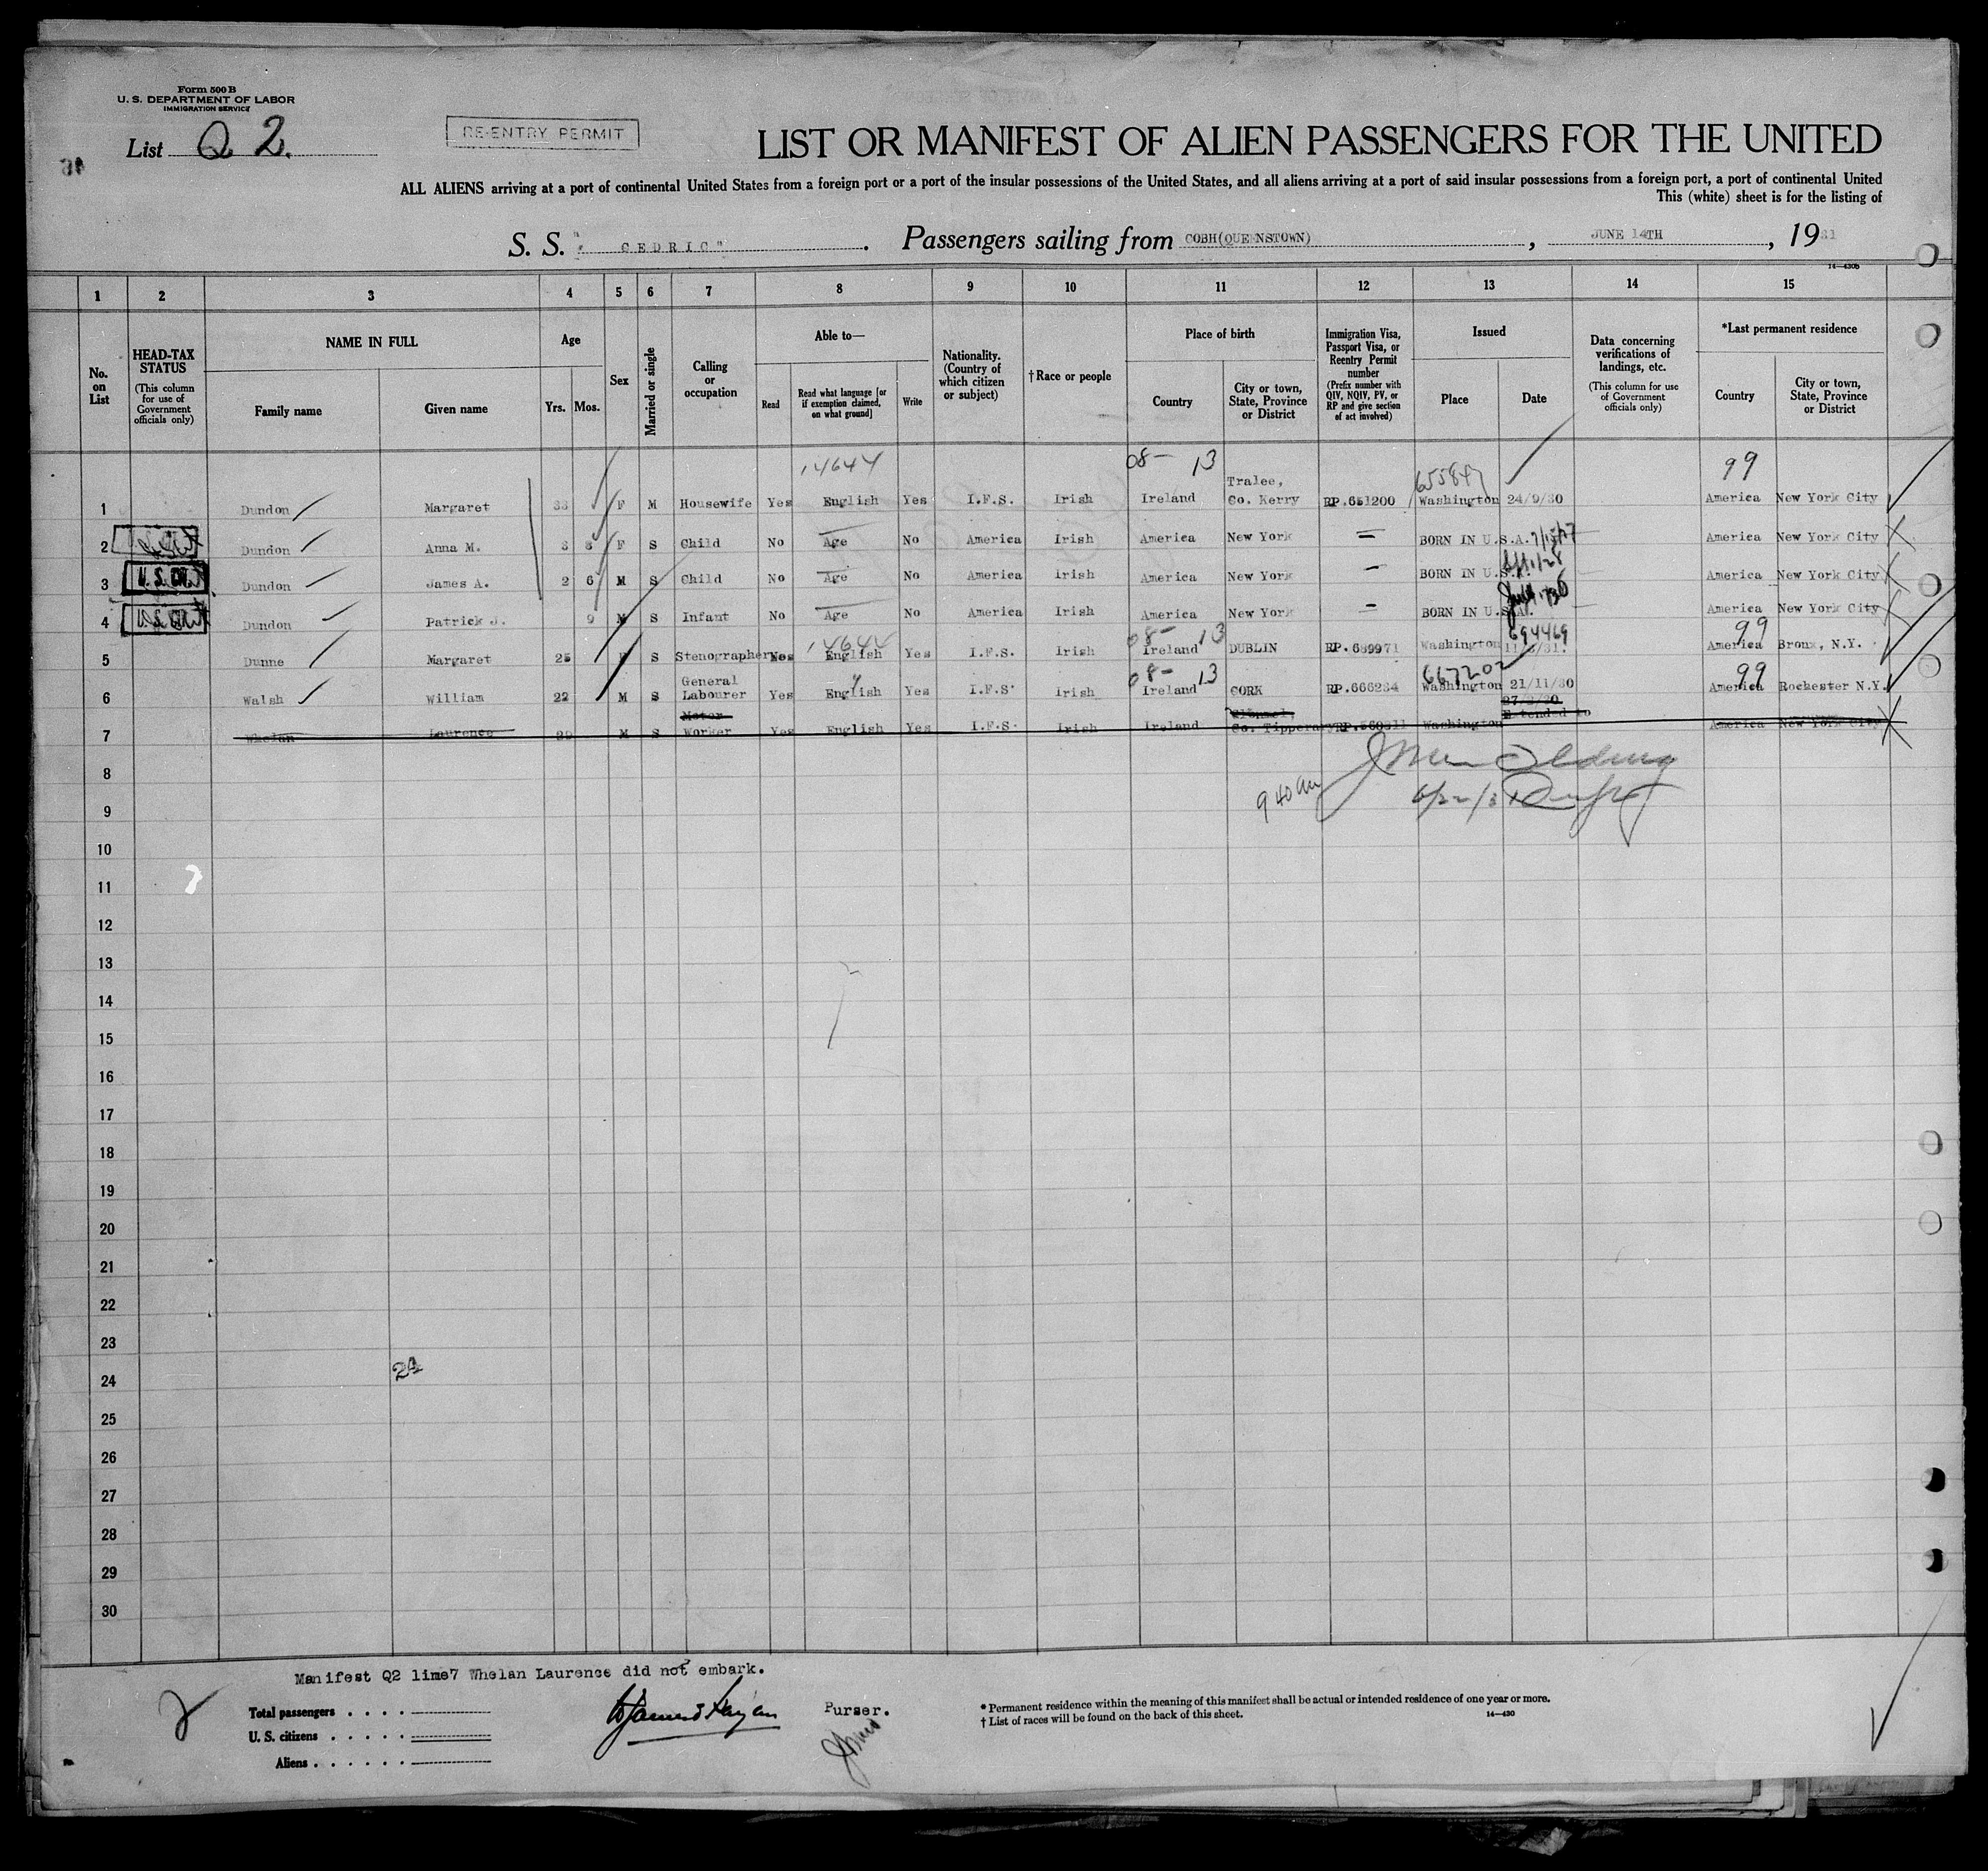 Form 500 B
U. S. DEPARTMENT OF LABOR
IMMIGRATION SERVICE
List Q 2.
RE-ENTRY PERMIT
LIST OR MANIFEST OF ALIEN PASSENGERS FOR THE UNITED
ALL ALIENS arriving at a port of continental United States from a foreign port or a port of the insular possessions of the United States, and all aliens arriving at a port of said insular possessions from a foreign port, a port of continental United
This (white) sheet is for the listing of
S. S. " CEDRIC" . Passengers sailing from COBH(QUEENSTOWN) , JUNE 14TH , 1931
14—430B
1 2 3 4 5 6 7 8 9 10 11 12 13 14 15
No. on List
HEAD-TAX STATUS (This column for use of Government officials only)
NAME IN FULL
Family name
Given name
Age
Yrs.
Mos.
Sex
Married or single
Calling or occupation
Able to—
Read
Read what language [or if exemption claimed, on what ground]
Write
Nationality. (Country of which citizen or subject)
†Race or people
Place of birth
Country
City or town, State, Province or District
Immigration Visa, Passport Visa, or Reentry Permit number (Prefix number with QIV, NQIV, PV, or RP and give section of act involved)
Issued
Place
Date
Data concerning verifications of landings, etc. (This column for use of Government officials only)
*Last permanent residence
Country
City or town, State, Province or District
14644 08- 13 655847 99
1 Dundon Margaret 33 F M Housewife Yes English Yes I.F.S. Irish Ireland Tralee, Co. Kerry RP.651200 Washington 24/9/30 America New York City
2 Dundon Anna M. 3 8 F S Child No Age No America Irish America New York — BORN IN U.S.A. 7/15/27 America New York City
3 U. S. Dundon James A. 2 6 M S Child No Age No America Irish America New York — BORN IN U.S.A. America New York City
4 Dundon Patrick J. 9 M S Infant No Age No America Irish America New York — BORN IN U.S.A. America New York City
14644 08- 13 694469 99
5 Dunne Margaret 25 F S Stenographer Yes English Yes I.F.S. Irish Ireland DUBLIN RP.689971 Washington America Bronx, N.Y.
08- 13 667202 99
6 Walsh William 22 M S General Labourer Yes English Yes I.F.S. Irish Ireland CORK RP.666234 Washington 21/11/30 America Rochester N.Y.
7 Whelan Laurence 29 M S Motor Worker Yes English Yes I.F.S. Irish Ireland Clonmel, Co. Tipperary Washington 27/2/30 Extended to America New York City
8
9 40 am
9
10
11
12
13
14
15
16
17
18
19
20
21
22
23
24
25
26
27
28
29
30
24
Manifest Q2 lime7 Whelan Laurence did not embark.
Total passengers
U. S. citizens
Aliens
Purser.
* Permanent residence within the meaning of this manifest shall be actual or intended residence of one year or more.
† List of races will be found on the back of this sheet.
14—430